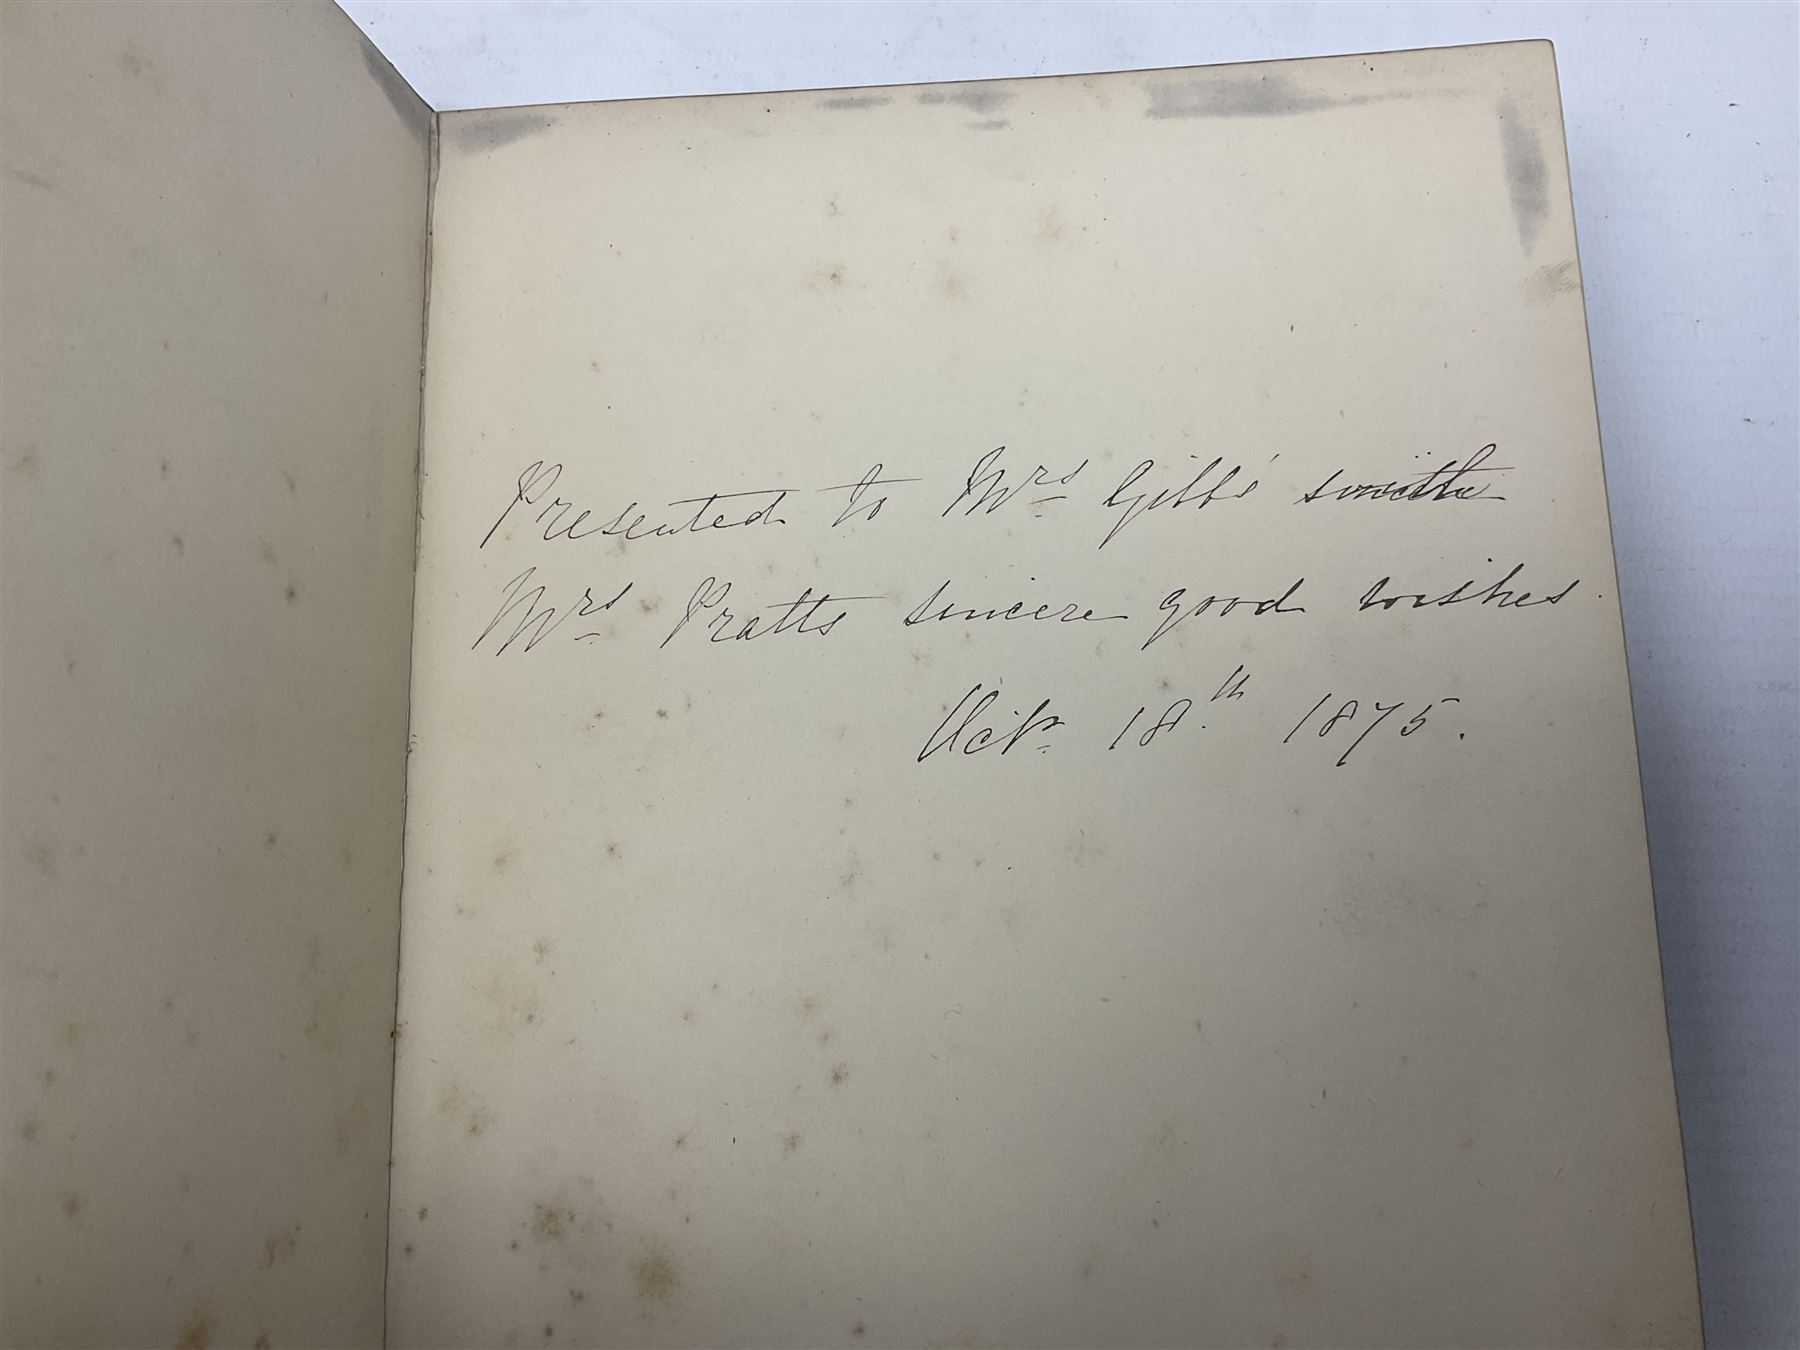 Presented to Mrs Gibbs' with
Mrs Pratts sincere good wishes
Octr 18th 1875.